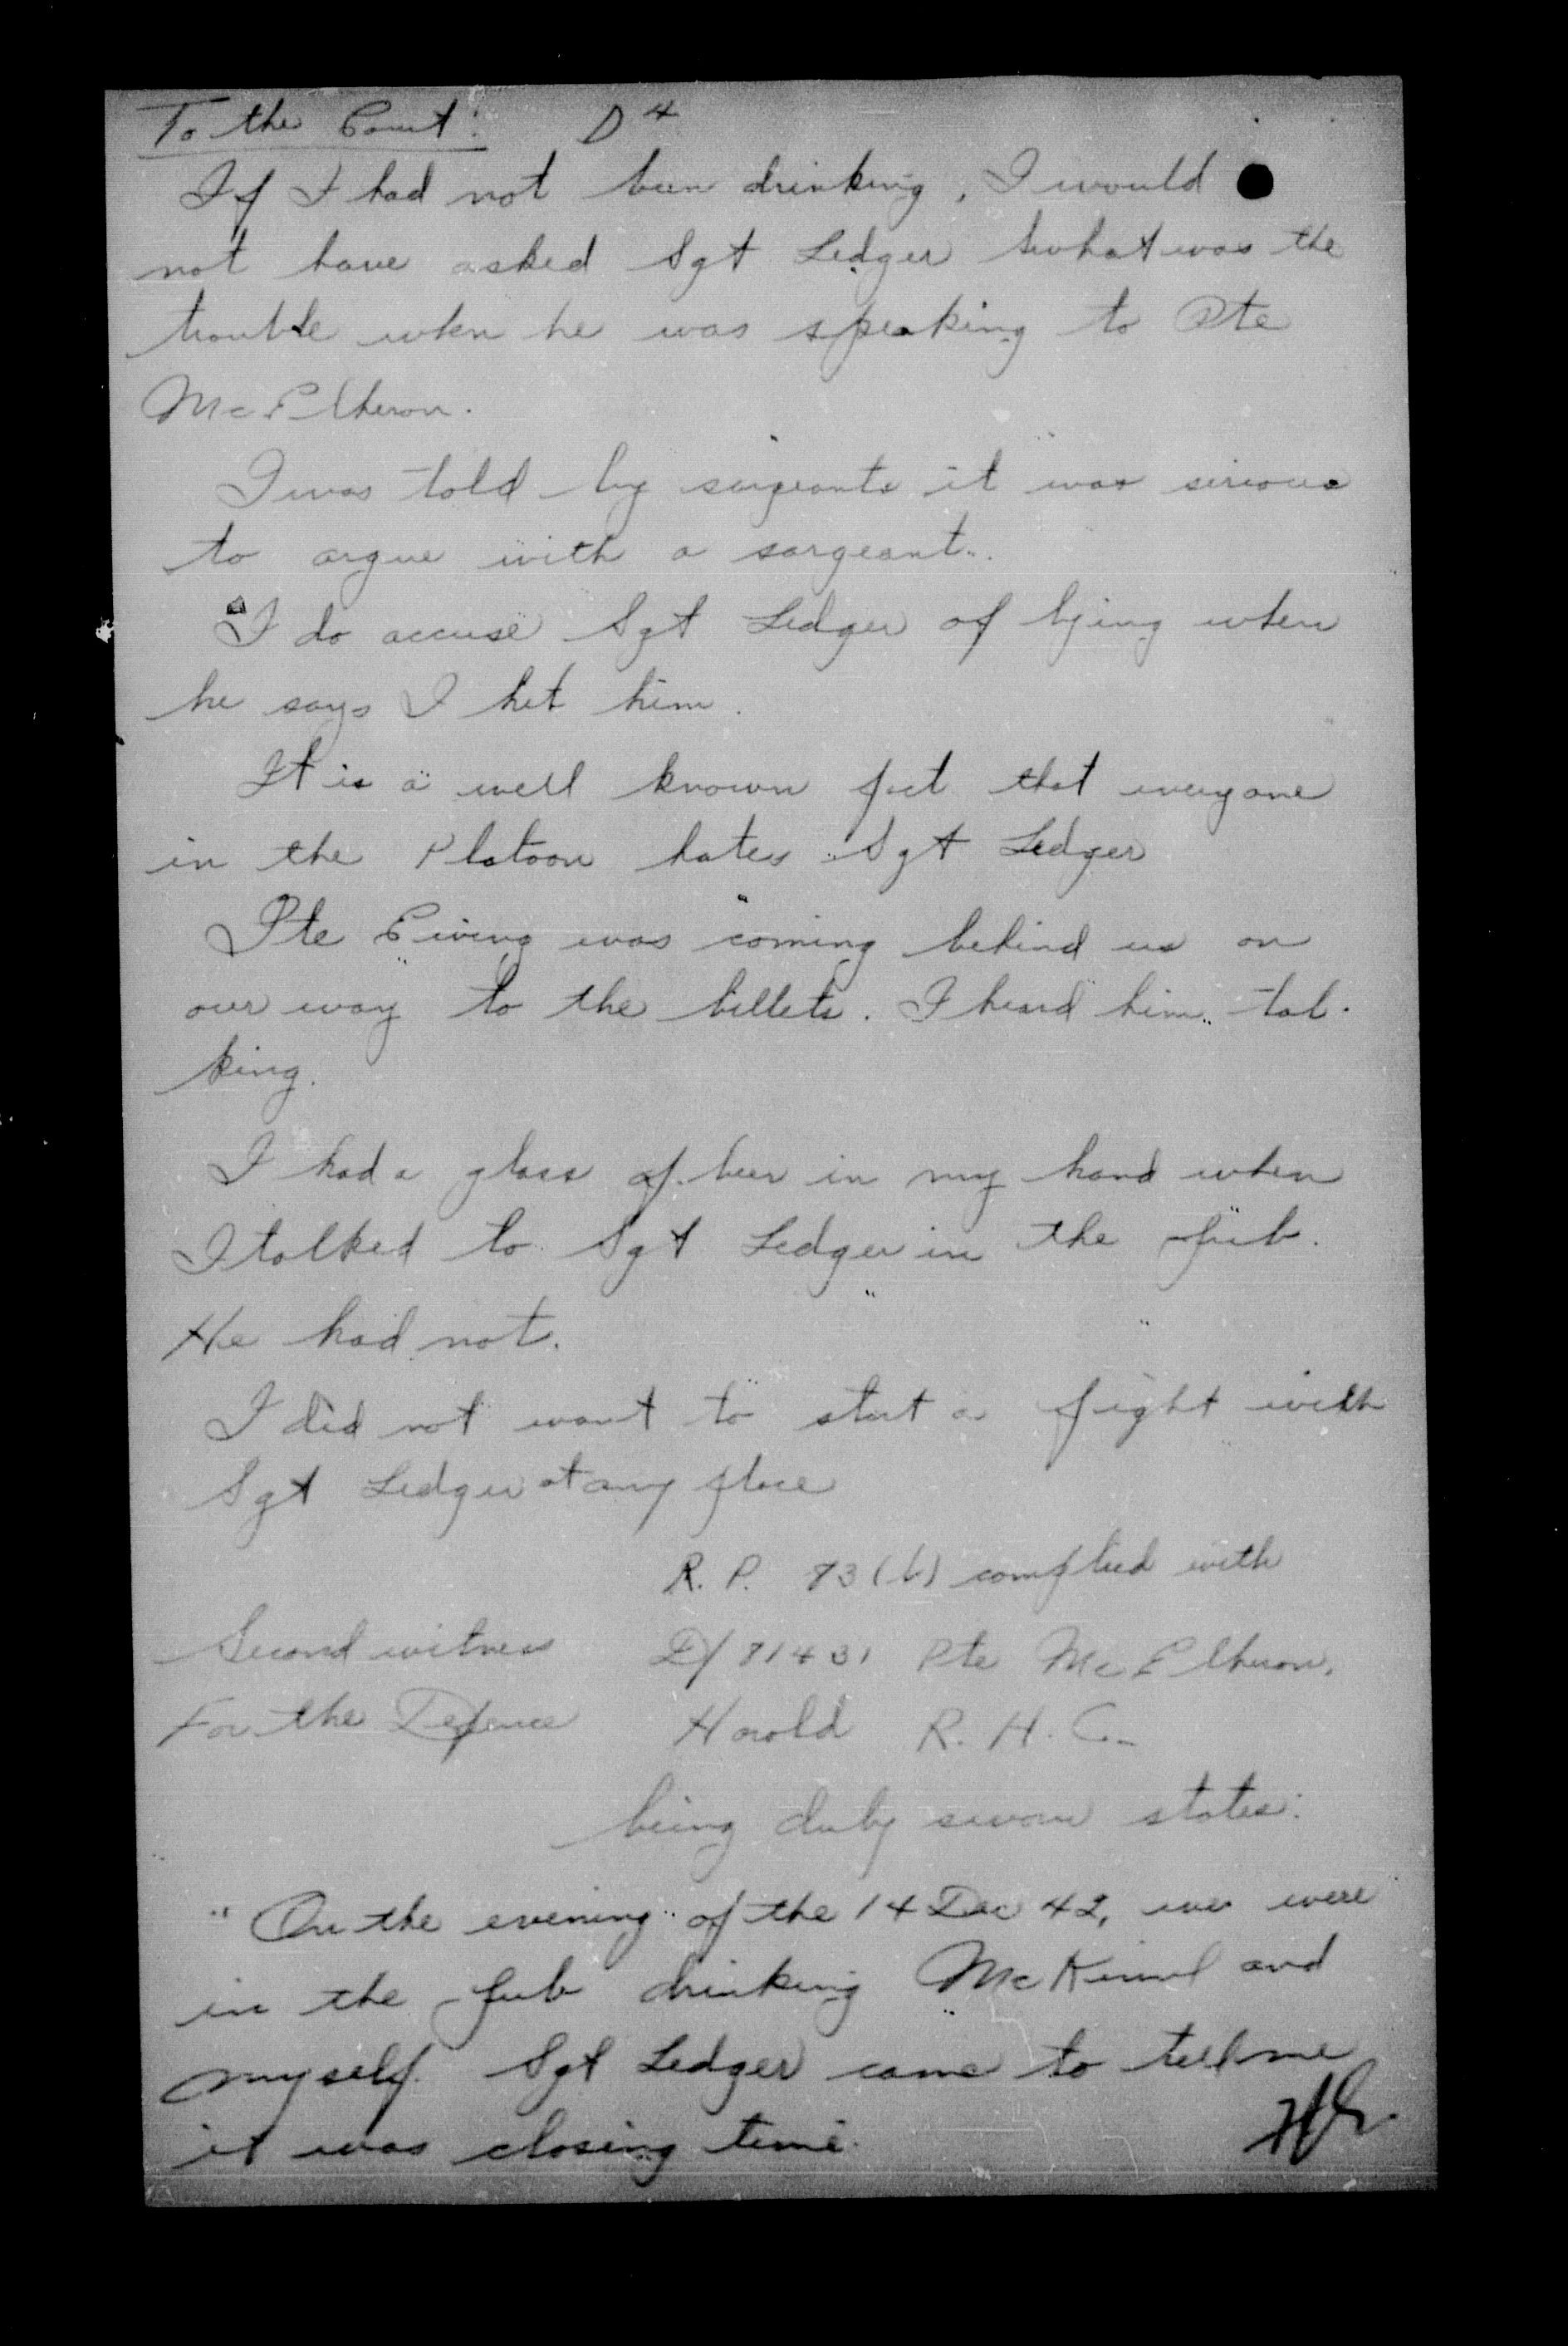 To the Court: D4
If I had not been drinking, I would
not have asked Sgt Ledger what was the
trouble when he was speaking to Pte
McElheron.
I was told by sergeants it was serious
to argue with a sargeant.
I do accuse Sgt Ledger of lying when
he says I hit him.
It is a well known fact that everyone
in the Platoon hates Sgt Ledger
Pte Ewing was coming behind us on
our way to the billets. I heard him tal-
king.
I had a glass of beer in my hand when
I talked to Sgt Ledger in the pub.
He had not.
I did not want to start a fight with
Sgt Ledger at any place
R. P. 83 (b) complied with
Second witness D/81431 Pte McElheron,
For the Defence Harold R. H. C.
being duly sworn states:
"On the evening of the 14 Dec 42, we were
in the pub drinking and
myself. Sgt Ledger came to tell me
it was closing time.